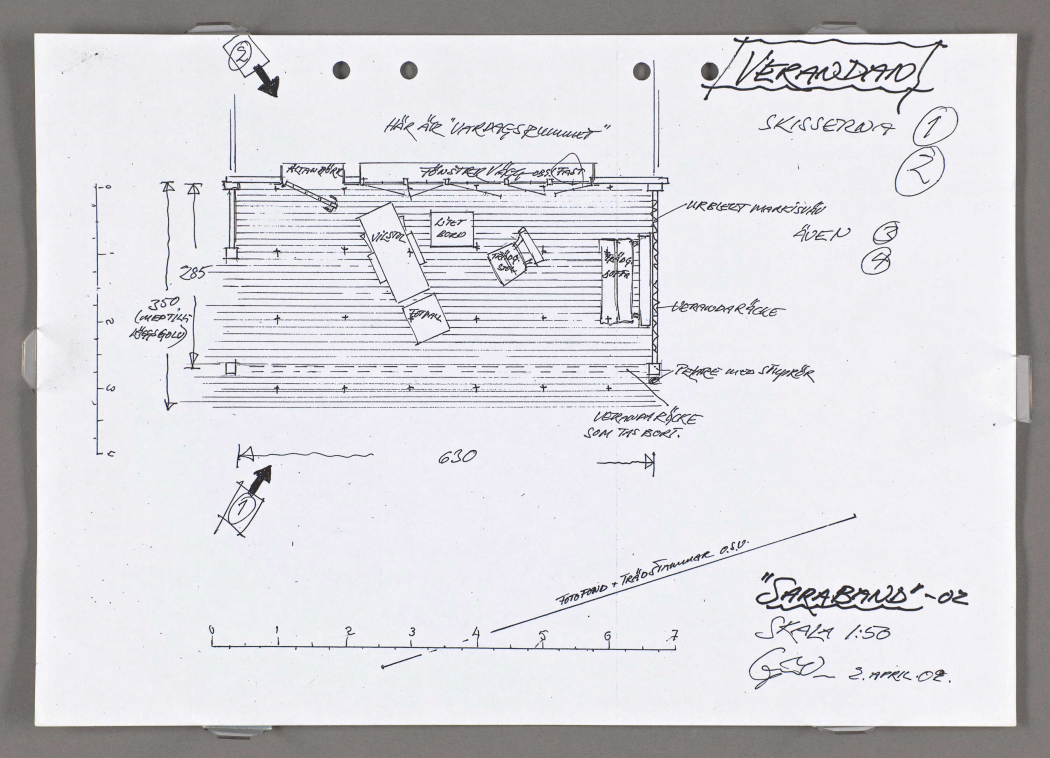 2
VERANDAN
SKISSERNA 1
2
ÄVEN 3
4
HÄR ÄR "VARDAGSRUMMET"
ALTANDÖRR
FÖNSTERVÄGG OBS! FAST
URBLEKT MARKISVÄV
VILSTOL
LITET
BORD
TRÄDG.
STOL
TRÄDG.
SOFFA
FOTPALL
285
350
(MED TILL-
LÄGGSGOLV)
VERANDARÄCKE
PELARE MED STUPRÖR
VERANDARÄCKE
SOM TAS BORT.
0
1
2
3
630
1
FOTOFOND + TRÄDSTAMMAR O.S.V.
0 1 2 3 4 5 6 7
"SARABAND"-02
SKALA 1:50
2. APRIL. 02.